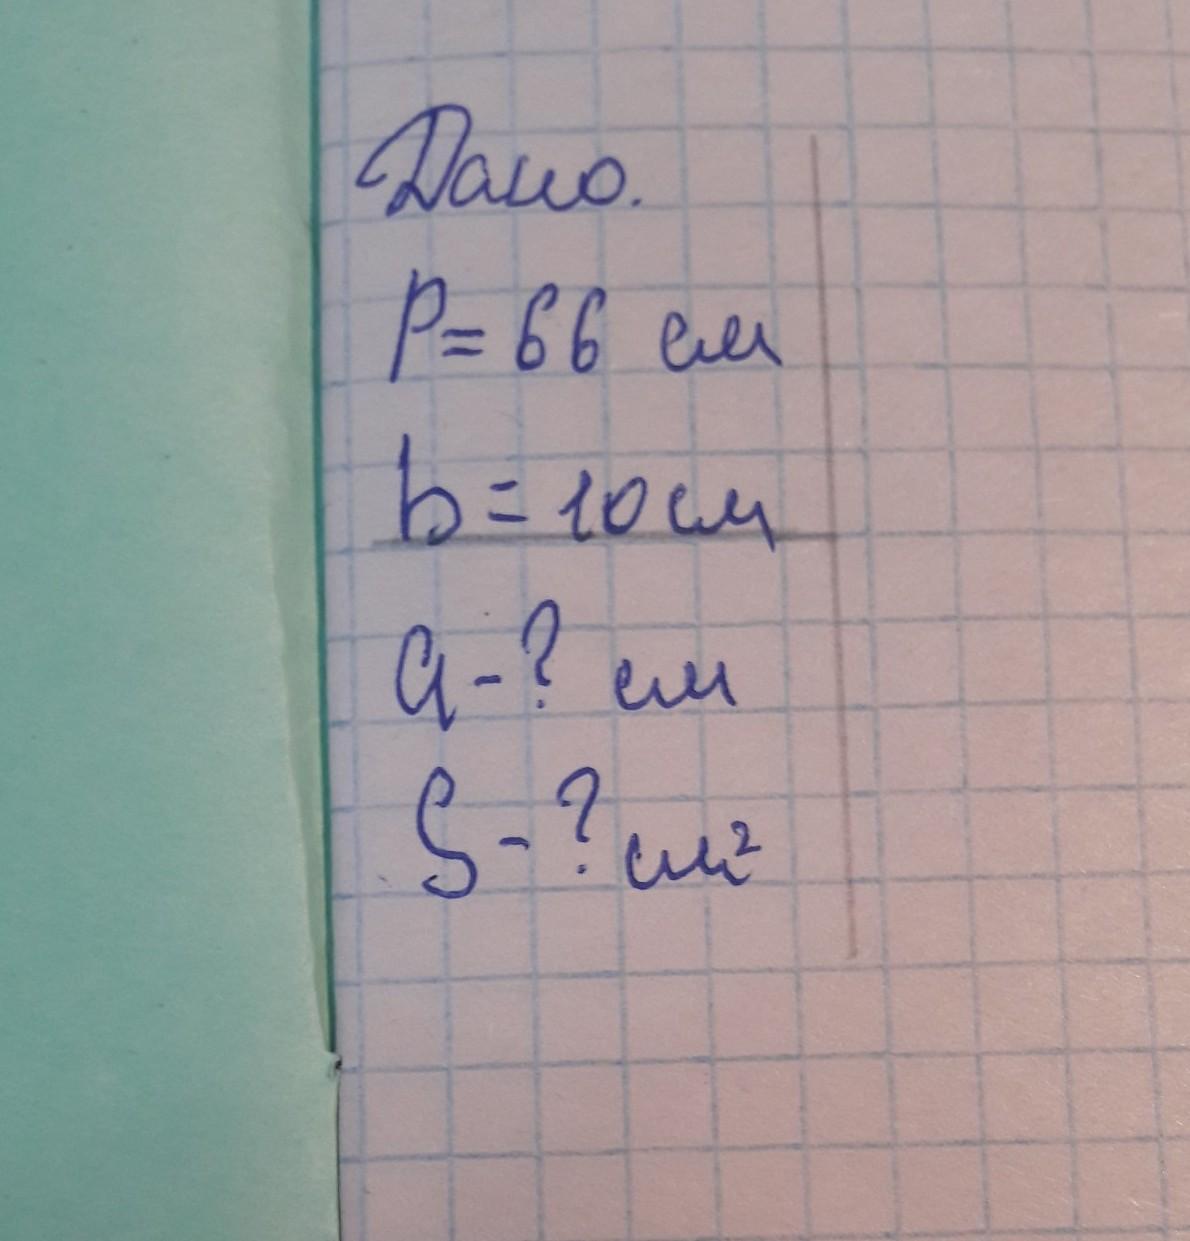 Дано.
P= 66 см
b = 10 см
a - ? см
S - ? см²